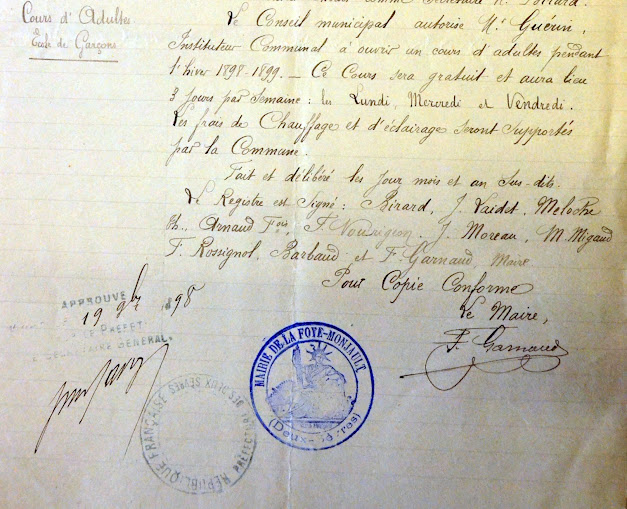 Cours d'Adultes
École de Garçons
comme Secrétaire
Le Conseil municipal autorise Mr Guérin,
Instituteur Communal à ouvrir un cours d'adultes pendant
l'hiver 1898-1899. — Ce Cours sera gratuit et aura lieu
3 jours par semaine : les Lundi, Mercredi et Vendredi.
Les frais de Chauffage et d'éclairage seront supportés
par la Commune.
Fait et délibéré les jour mois et an sus-dits.
Le Registre est signé : Birard, J. Vaidet, Meloche
Ph. Arnaud Fois, F. J. Moreau, M. Migaud
F. Rossignol, Barbaud et F. Garnaud Maire
Pour Copie Conforme
Le Maire,
F. Garnaud
APPROUVÉ
19 9bre 1898
LE PRÉFET
SECRÉTAIRE GÉNÉRAL,
MAIRIE DE LA FOYE-MONJAULT
(Deux-Sèvres)
RÉPUBLIQUE FRANÇAISE
PRÉFECTURE DES DEUX SÈVRES